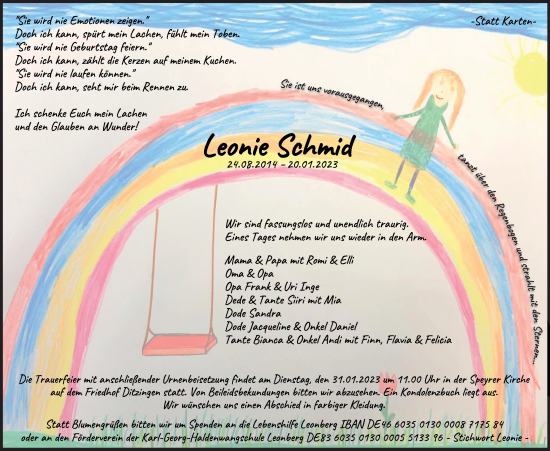 "Sie wird nie Emotionen zeigen."
Doch ich kann, spürt mein Lachen, fühlt mein Toben.
"Sie wird nie Geburtstag feiern."
Doch ich kann, zählt die Kerzen auf meinem Kuchen.
"Sie wird nie laufen können."
Doch ich kann, seht mir beim Rennen zu.
Ich schenke Euch mein Lachen
und den Glauben an Wunder!
-Statt Karten-
Sie ist uns vorausgegangen,
tanzt über den Regenbogen und strahlt mit den Sternen...
Leonie Schmid
24.08.2014 - 20.01.2023
Wir sind fassungslos und unendlich traurig.
Eines Tages nehmen wir uns wieder in den Arm.
Mama & Papa mit Romi & Elli
Oma & Opa
Opa Frank & Uri Inge
Dede & Tante Siiri mit Mia
Dode Sandra
Dode Jacqueline & Onkel Daniel
Tante Bianca & Onkel Andi mit Finn, Flavia & Felicia
Die Trauerfeier mit anschließender Urnenbeisetzung findet am Dienstag, den 31.01.2023 um 11.00 Uhr in der Speyrer Kirche
auf dem Friedhof Ditzingen statt. Von Beileidsbekundungen bitten wir abzusehen. Ein Kondolenzbuch liegt aus.
Wir wünschen uns einen Abschied in farbiger Kleidung.
Statt Blumengrüßen bitten wir um Spenden an die Lebenshilfe Leonberg IBAN DE46 6035 0130 0008 7175 84
oder an den Förderverein der Karl-Georg-Haldenwangschule Leonberg DE83 6035 0130 0005 5133 96 - Stichwort Leonie -